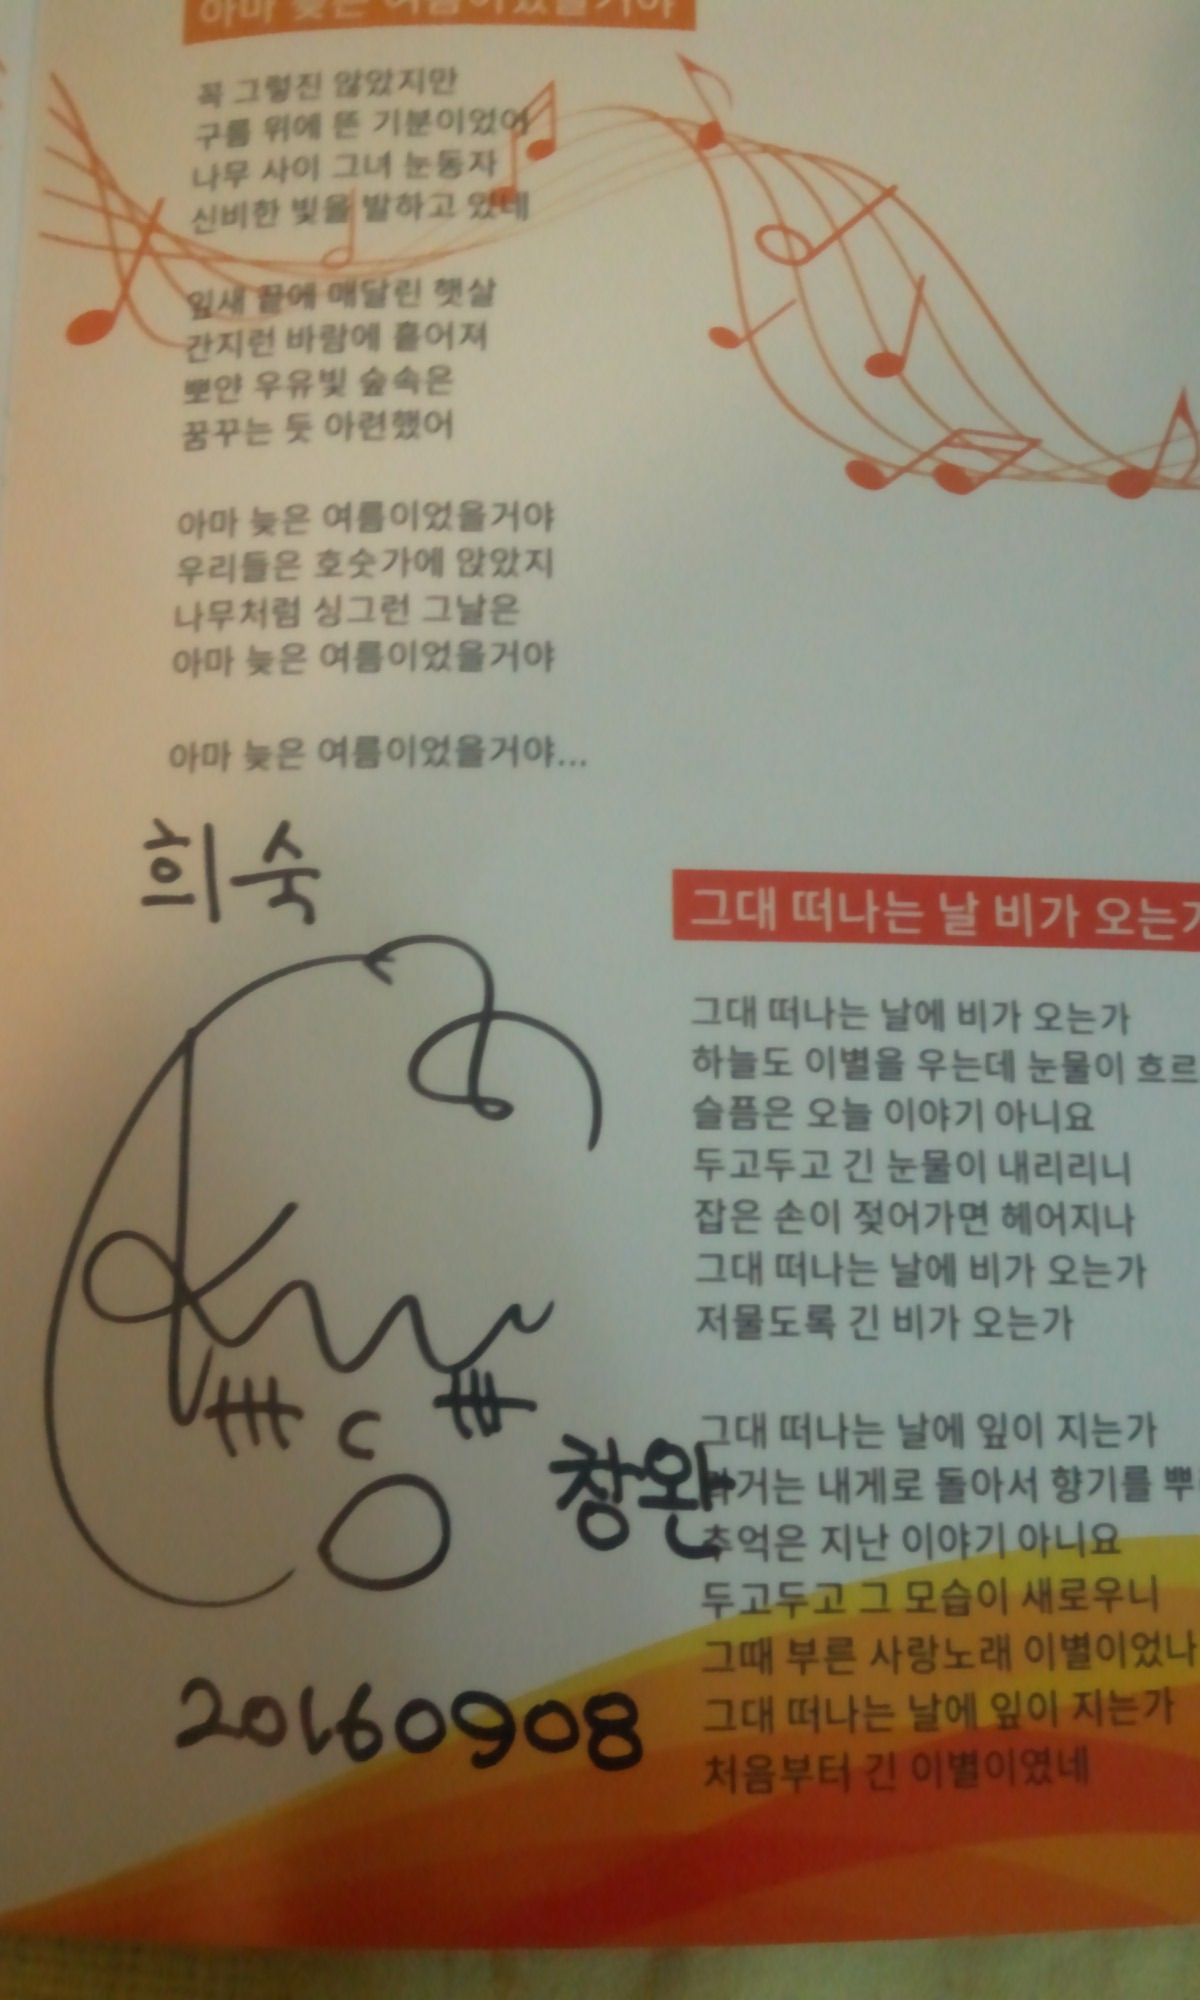 아마 늦은 여름이었을거야
꼭 그렇진 않았지만
구름 위에 뜬 기분이었어
나무 사이 그녀 눈동자
신비한 빛을 발하고 있네
잎새 끝에 매달린 햇살
간지런 바람에 흩어져
뽀얀 우유빛 숲속은
꿈꾸는 듯 아련했어
아마 늦은 여름이었을거야
우리들은 호숫가에 앉았지
나무처럼 싱그런 그날은
아마 늦은 여름이었을거야
아마 늦은 여름이었을거야...
희숙
창완
20160908
그대 떠나는 날 비가 오는가
그대 떠나는 날에 비가 오는가
하늘도 이별을 우는데 눈물이 흐르
슬픔은 오늘 이야기 아니요
두고두고 긴 눈물이 내리리니
잡은 손이 젖어가면 헤어지나
그대 떠나는 날에 비가 오는가
저물도록 긴 비가 오는가
그대 떠나는 날에 잎이 지는가
과거는 내게로 돌아서 향기를 뿌
추억은 지난 이야기 아니요
두고두고 그 모습이 새로우니
그때 부른 사랑노래 이별이었나
그대 떠나는 날에 잎이 지는가
처음부터 긴 이별이였네